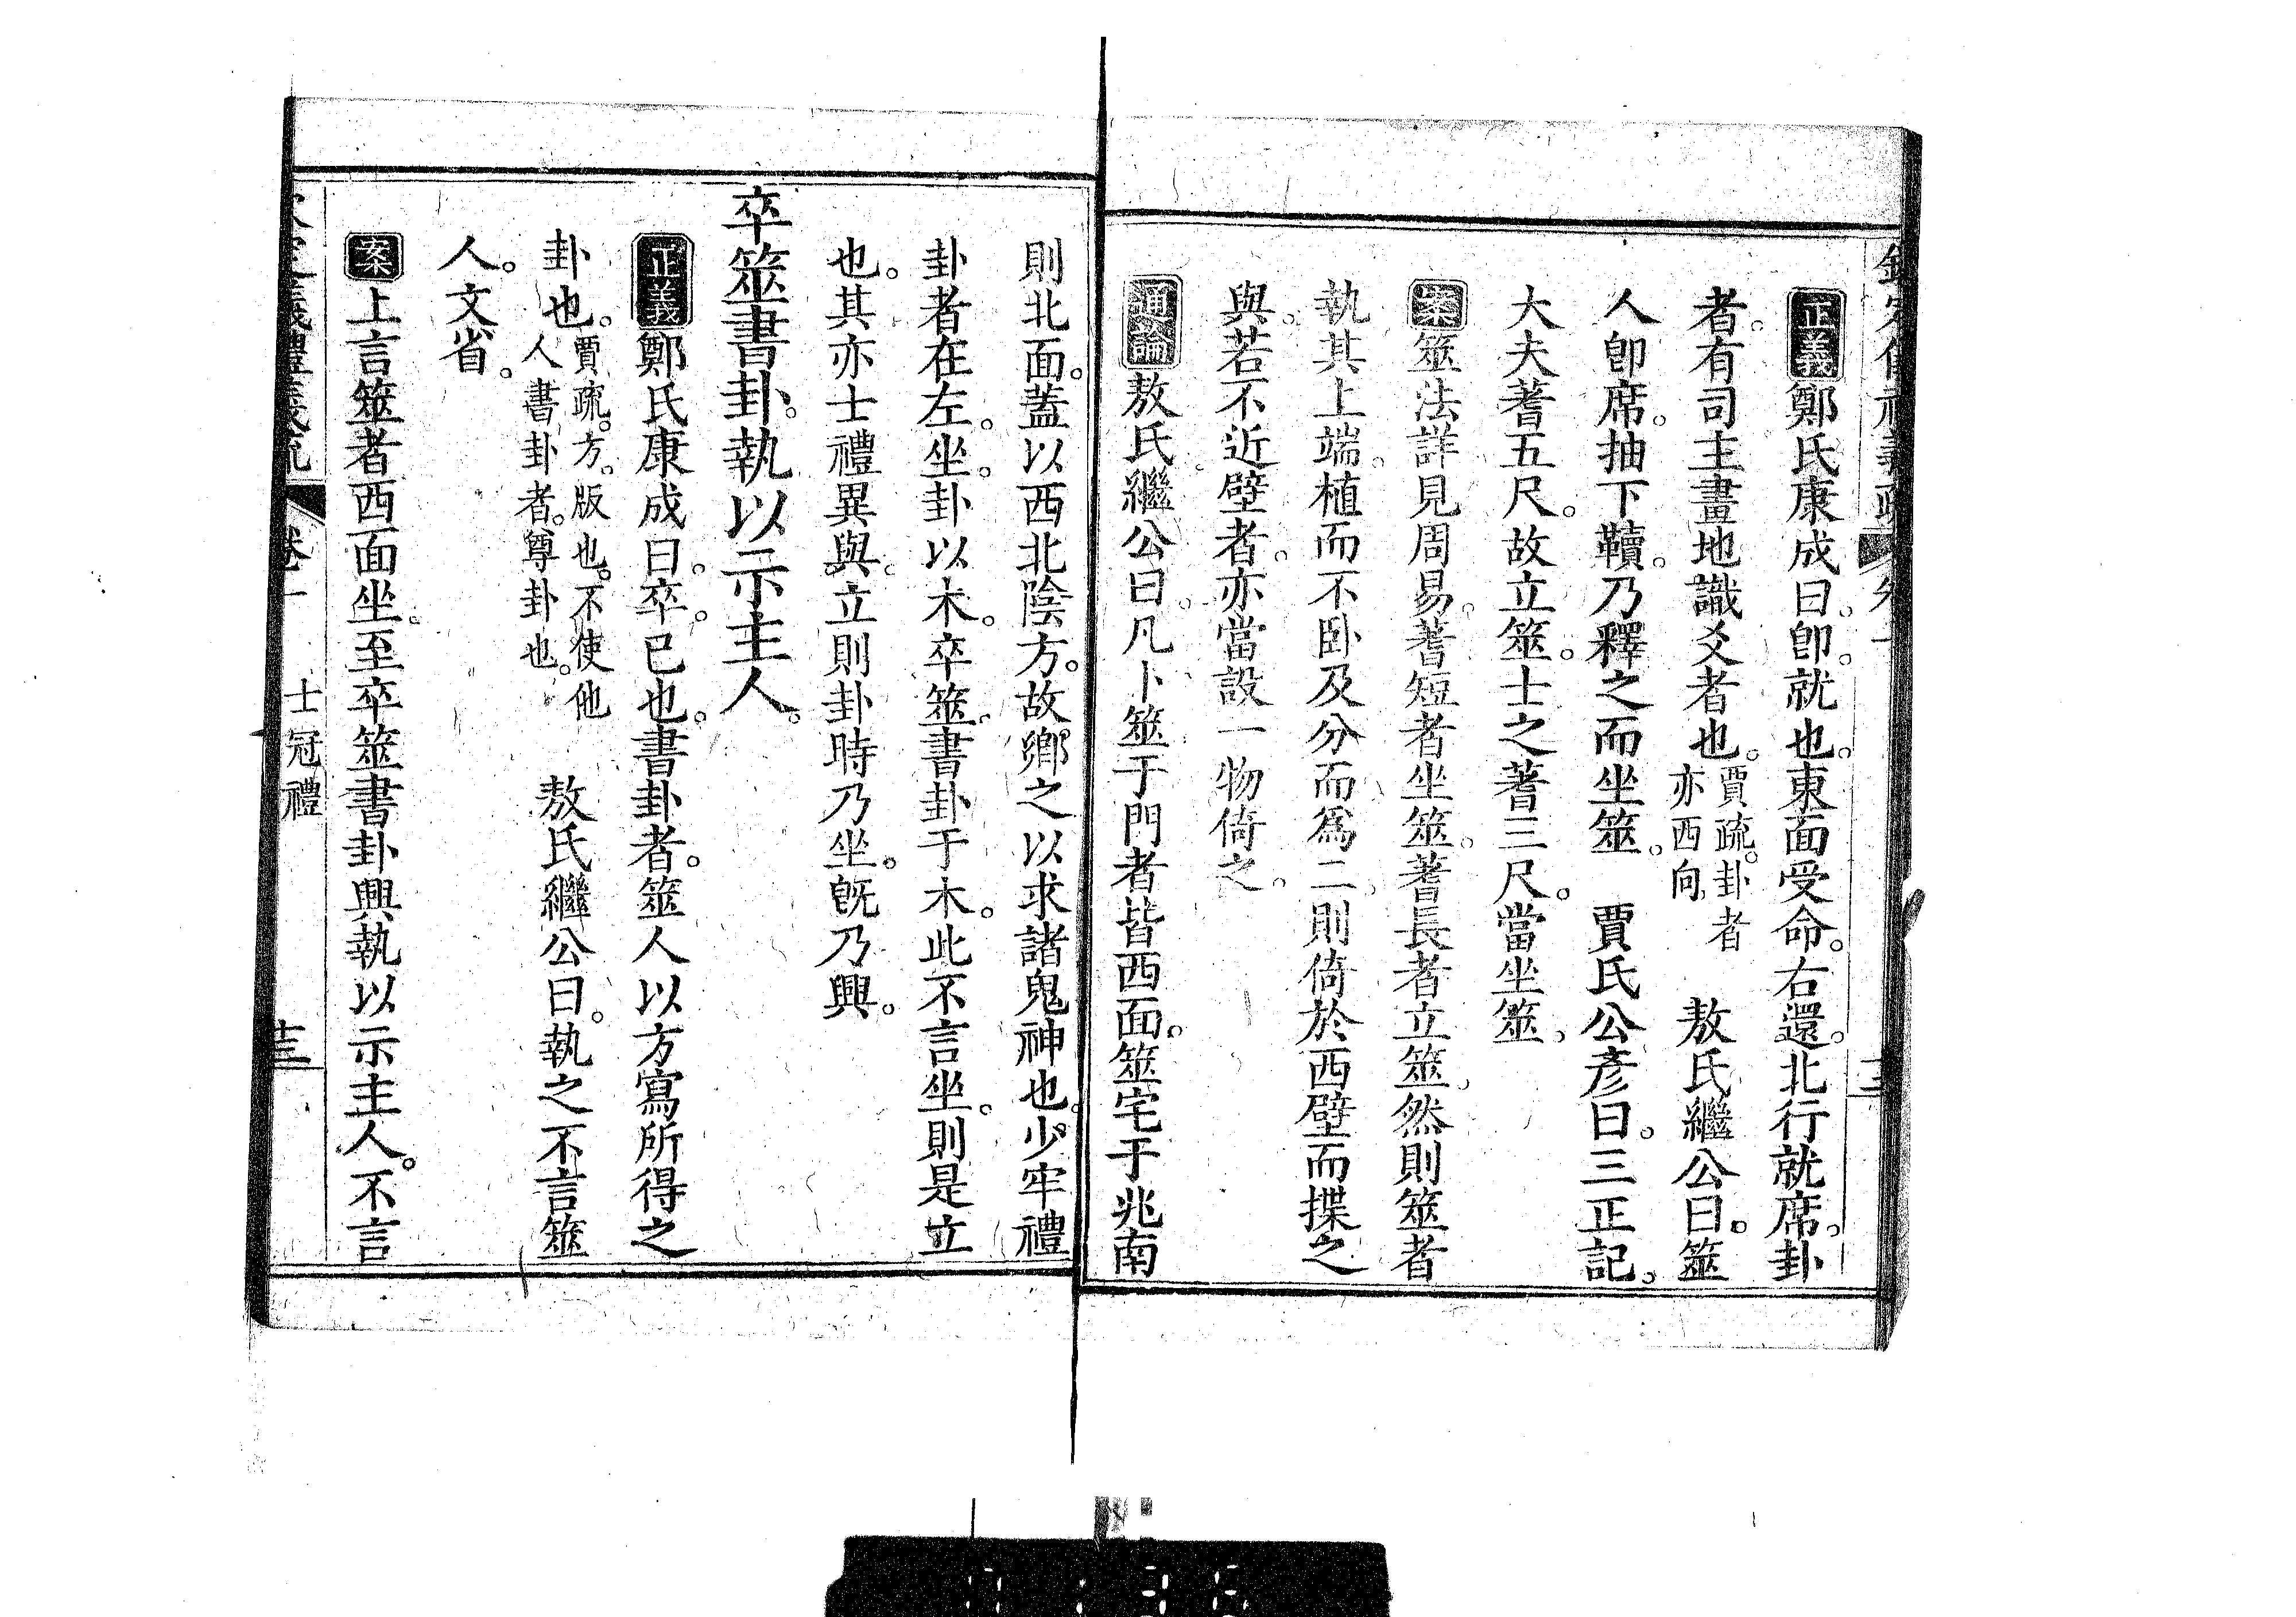 正義鄭氏康成曰。卽。就也。東面受命。右還。北行就席。卦
者。有司主畫地識爻者也。賈疏。卦者亦西向。 敖氏繼公曰。筮
人卽席。抽下韇。乃釋之而坐筮。 賈氏公彥曰。三正記。
大夫蓍五尺。故立筮。士之蓍三尺。當坐筮。
案筮法詳見周易。蓍短者坐筮。蓍長者立筮。然則筮者
執其上端。植而不卧。及分而爲二。則倚於西壁而揲之
與。若不近壁者。亦當設一物倚之。
通論敖氏繼公曰。凡卜筮于門者皆西面。筮宅于兆南
則北面。蓋以西北陰方。故鄉之以求諸鬼神也。少牢禮
卦者在左。坐。卦以木。卒筮。書卦于木。此不言坐。則是立
也。其亦士禮異與。立則卦時乃坐。旣乃興。
卒筮書卦。執以示主人。
正義鄭氏康成曰。卒。已也。書卦者。筮人以方寫所得之
卦也。賈疏。方。版也。不使他人書卦者。尊卦也。 敖氏繼公曰。執之不言筮
人。文省。
案上言筮者西面坐。至卒筮書卦興執以示主人。不言
儀禮義疏 卷一 士冠禮